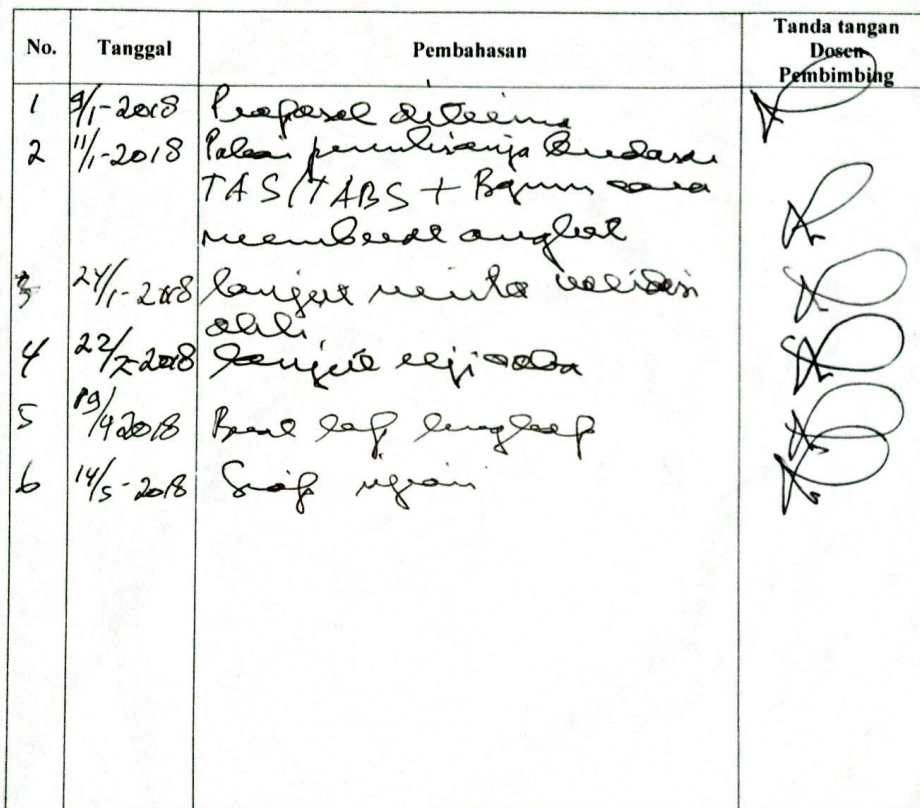 No. Tanggal Pembahasan Tanda tangan
Dosen
Pembimbing
1 9/1-2018 Proposal diterima
2 11/1-2018 Pakai penulisanya
TAS/TABS + Bgmn cara
membuat angket
3 24/1-2018 lanjut minta validasi
ahli
4 22/2-2018 lanjut uji coba
5 19/4 2018 Buat lap lengkap
6 14/5-2018 Siap ujian